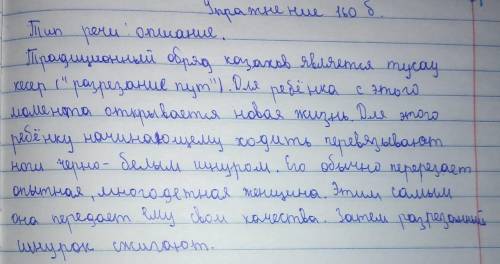 Упражнение 160 б.
Тип речи описание.
Традиционный обряд казахов является тусау
кесер ("разрезание пут"). Для ребёнка с этого
момента открывается новая жизнь. Для этого
ребёнку начинающему ходить перевязывают
ноги черно-белым шнуром. Его обычно перерезает
опытная, многодетная женщина. Этим самым
она передает ему свои качества. Затем разрезанный
шнурок сжигают.